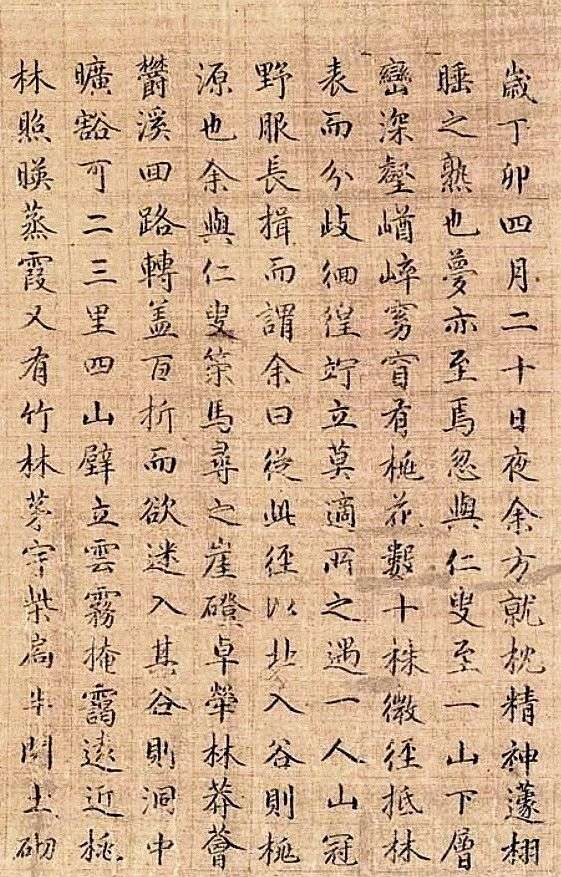 歲丁卯四月二十日夜余方就枕精神蘧栩
睡之熟也夢亦至焉忽與仁叟至一山下層
巒深壑崷崒窈窅有桃花數十株微徑抵林
表而分歧徊徨竚立莫適所之遇一人山冠
野服長揖而謂余曰從此徑以北入谷則桃
源也余與仁叟策馬尋之崖磴卓犖林莽薈
鬱溪回路轉盖百折而欲迷入其谷則洞中
曠豁可二三里四山壁立雲霧掩靄遠近桃
林照暎蒸霞又有竹林茅宇柴扃半開土砌